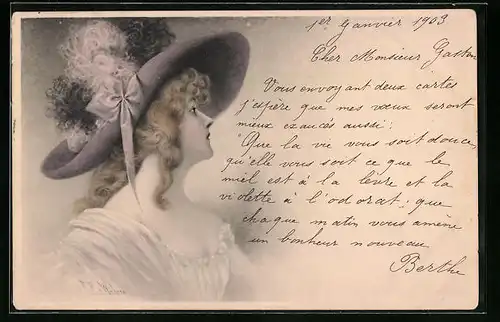 1er Janvier 1903
Cher Monsieur Gaston
Vous envoyant deux cartes
j'espère que mes vœux seront
mieux exaucés aussi:
"Que la vie vous soit douce,
qu'elle vous soit ce que le
miel est à la lèvre et la
violette à l'odorat; que
chaque matin vous amène
un bonheur nouveau
Berthe